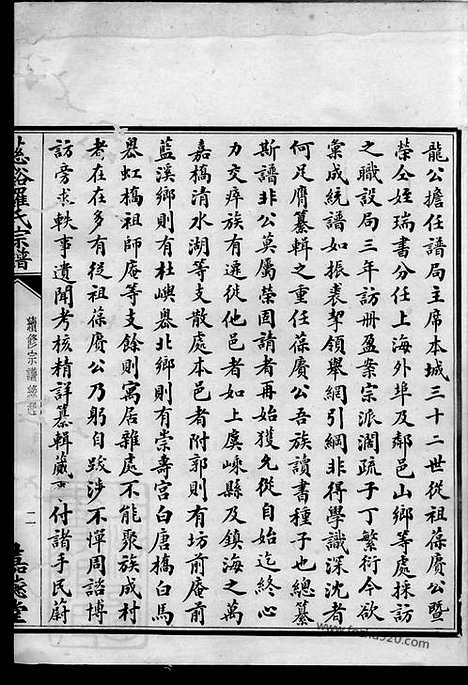 龍公擔任譜局主席本城三十二世從祖葆賡公暨
榮仝姪瑞書分任上海外埠及鄰邑山鄉等處採訪
之職設局三年訪册盈案宗派濶疏子丁繁衍今欲
彙成統譜如振裘挈領舉網引綱非得學識深沈者
何足膺纂輯之重任葆賡公吾族讀書種子也總纂
斯譜非公莫屬榮固請者再始獲允從自始迄終心
力交瘁族有遷徙他邑者如上虞嵊縣及鎮海之萬
嘉橋清水湖等支散處本邑者附郭則有坊前庵前
藍溪鄉則有杜嶼嶴北鄉則有崇壽宮白唐橋白馬
嶴虹橋祖師庵等支餘則寓居雜處不能聚族成村
者在在多有從祖葆賡公乃躬自跋涉不憚周諮博
訪旁求軼事遺聞考核精詳纂輯蕆 付諸手民蔚
慈谿羅氏宗譜
續修宗譜
二